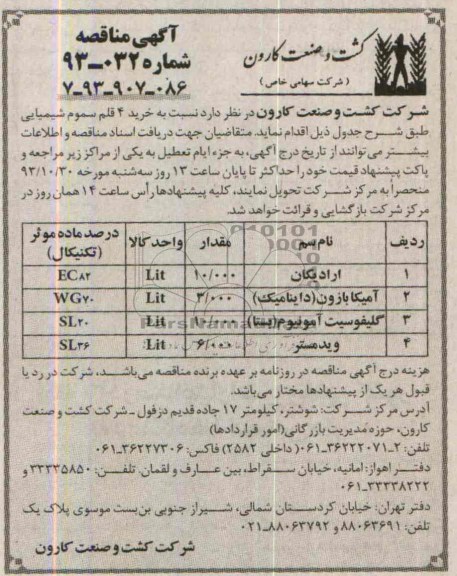 آگهی مناقصه
شماره ۰۳۲-۹۳
۷-۹۳-۹۰۷-۰۸۶
کشت و صنعت کارون
(شرکت سهامی خاص)
شرکت کشت و صنعت کارون در نظر دارد نسبت به خرید ۴ قلم سموم شیمیایی
طبق شرح جدول ذیل اقدام نماید. متقاضیان جهت دریافت اسناد مناقصه و اطلاعات
بیشتر می توانند از تاریخ درج آگهی، به جزء ایام تعطیل به یکی از مراکز زیر مراجعه و
پاکت پیشنهاد قیمت خود را حداکثر تا پایان ساعت ۱۳ روز سه‌شنبه مورخه ۹۳/۱۰/۳۰
منحصرا به مرکز شرکت تحویل نمایند، کلیه پیشنهادها رأس ساعت ۱۴ همان روز در
مرکز شرکت بازگشایی و قرائت خواهد شد.
ردیف نام سم مقدار واحد کالا درصد ماده موثر (تکنیکال)
۱ ارادیکان ۱۰/۰۰۰ Lit EC۸۲
۲ آمیکابازون (داینامیک) ۳/۰۰۰ Lit WG۷۰
۳ گلیفوسیت آمونیوم (بستا) Lit SL۲۰
۴ ویدمستر ۶/۰۰۰ Lit SL۳۶
هزینه درج آگهی مناقصه در روزنامه بر عهده برنده مناقصه می‌باشد، شرکت در رد یا
قبول هر یک از پیشنهادها مختار می‌باشد.
آدرس مرکز شرکت: شوشتر، کیلومتر ۱۷ جاده قدیم دزفول - شرکت کشت و صنعت
کارون، حوزه مدیریت بازرگانی (امور قراردادها)
تلفن: ۲-۳۶۲۲۲۰۷۱-۰۶۱ (داخلی ۲۵۸۲) فاکس: ۳۶۲۲۷۳۰۶-۰۶۱
دفتر اهواز: امانیه، خیابان سقراط، بین عارف و لقمان. تلفن: ۳۳۳۳۵۸۵۰ و
۳۳۳۳۸۲۲۲-۰۶۱
دفتر تهران: خیابان کردستان شمالی، شیراز جنوبی بن‌بست موسوی پلاک یک
تلفن: ۸۸۰۶۳۶۹۱ و ۸۸۰۶۳۷۹۲-۰۲۱
شرکت کشت و صنعت کارون